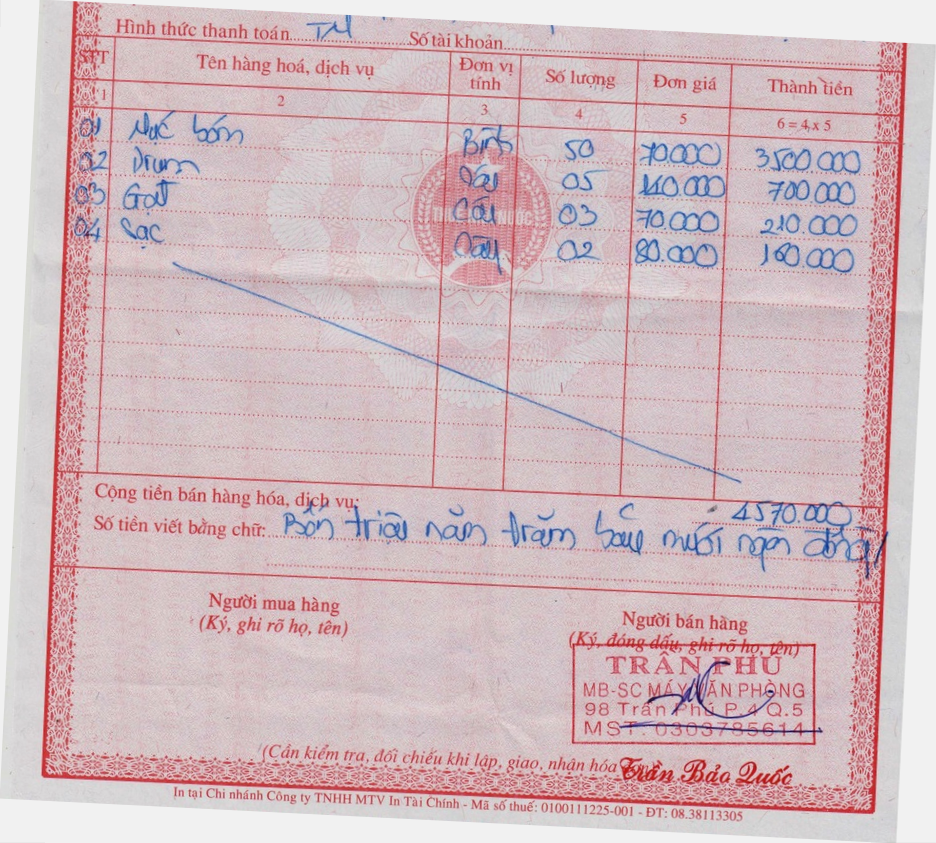 Hình thức thanh toán TM Số tài khoản
STT Tên hàng hoá, dịch vụ Đơn vị tính Số lượng Đơn giá Thành tiền
1 2 3 4 5 6 = 4 x 5
01 Mực bơm Bình 50 70.000 3500.000
02 Drum Cây 05 140.000 700.000
03 Gạt Cây 03 70.000 210.000
04 Sạc Cây 02 80.000 160.000
Cộng tiền bán hàng hóa, dịch vụ: 4570.000
Số tiền viết bằng chữ: Bốn triệu năm trăm bảy mươi ngàn đồng
Người mua hàng
(Ký, ghi rõ họ, tên)
Người bán hàng
(Ký, đóng dấu, ghi rõ họ, tên)
TRẦN PHÚ
MB-SC MÁY VĂN PHÒNG
98 Trần Phú P.4 Q.5
MST: 0303785614
(Cần kiểm tra, đối chiếu khi lập, giao, nhân hóa
Trần Bảo Quốc
In tại Chi nhánh Công ty TNHH MTV In Tài Chính - Mã số thuế: 0100111225-001 - ĐT: 08.38113305